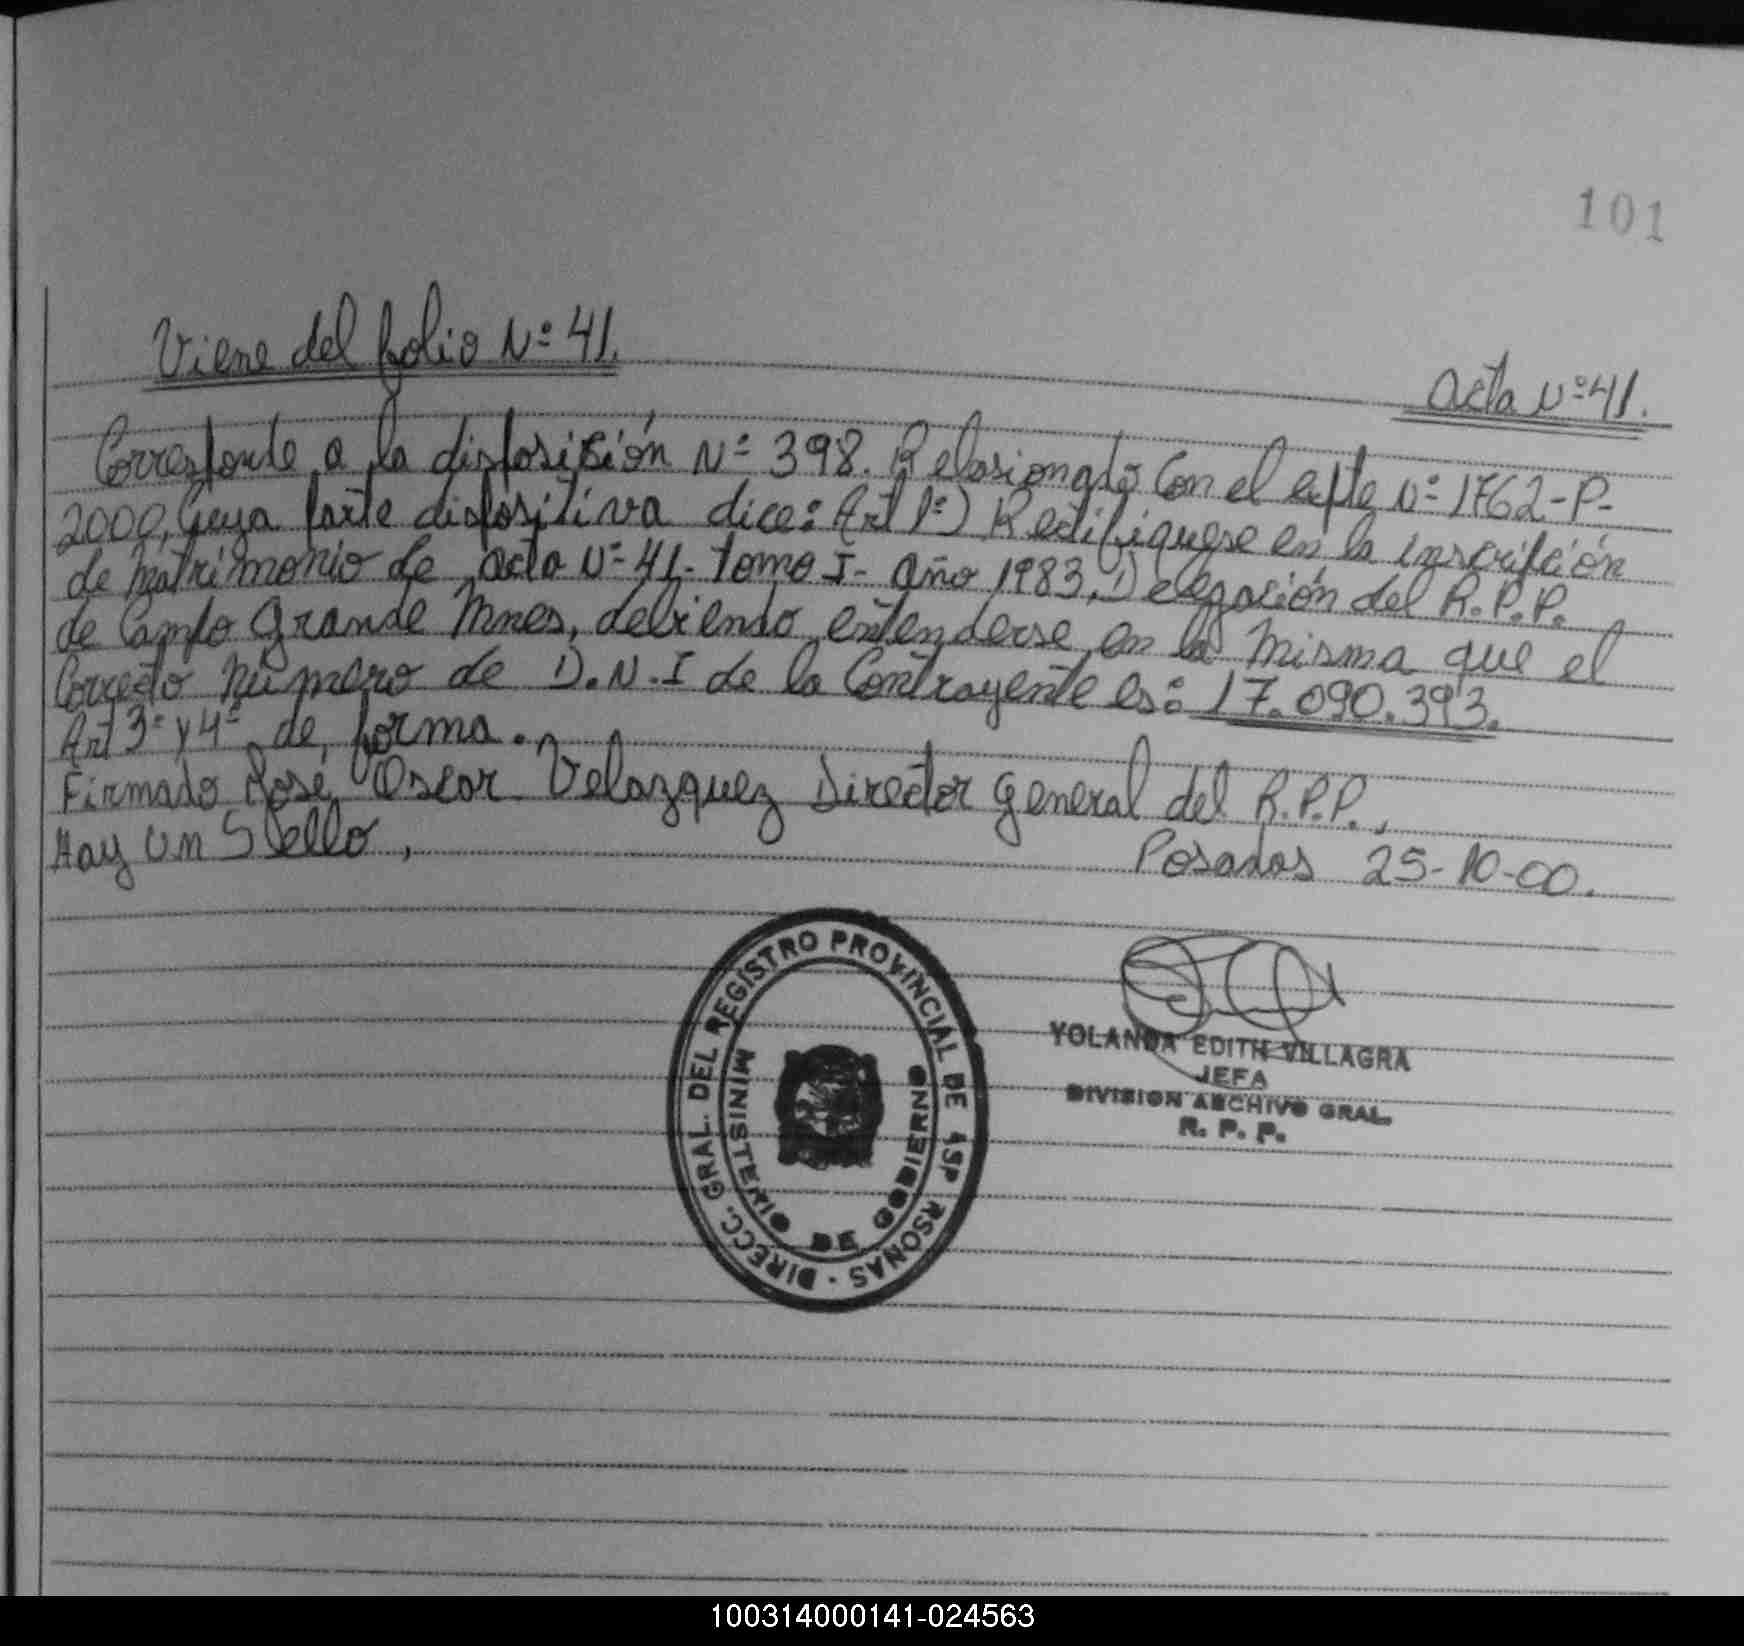 101
Viene del folio Nº 41.
Acta Nº 41.
Corresponde a la disposición Nº 398. Relasionado Con el expte Nº 1762-P-
2000, Cuya parte dispositiva dice: Art 1º) Rectifiquese en la inscripción
de matrimonio de acta Nº 41- tomo I- año 1983, Delegación del R.P.P.
de Campo Grande Mnes, debiendo entenderse en la misma que el
Correcto número de D.N.I de la Contrayente es: 17.090.393.
Art 3º y 4º de forma.
Firmado José Oscar Velazquez Director General del R.P.P.,
Hay un Sello,
Posadas 25-10-00.
DIRECC. GRAL. DEL REGISTRO PROVINCIAL DE ASP RSONAS -
MINISTERIO DE GOBIERNO
YOLANDA EDITH VILLAGRA
JEFA
DIVISION ARCHIVO GRAL.
R. P. P.
100314000141-024563